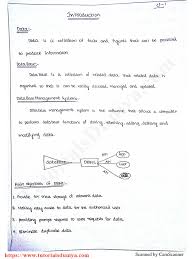 Introduction
Data:-
Data is a collection of facts and figures that can be processed
to produce information.
Database:-
Database is a collection of related data. And related data is
organised so that it can be easily accessed, managed and updated.
DataBase Management System:-
Database management system is the software that allows a computer
to perform database functions of storing, retrieving, adding, deleting and
modifying data.
Database
DBMS
App
Main objectives of DBMS:-
1. Provide for mass storage of relevant data
2. Making easy access to data for authorized user
3. Providing prompt response to user requests for data
4. Eliminate duplicate data
https://www.tutorialsduniya.com
Scanned by CamScanner